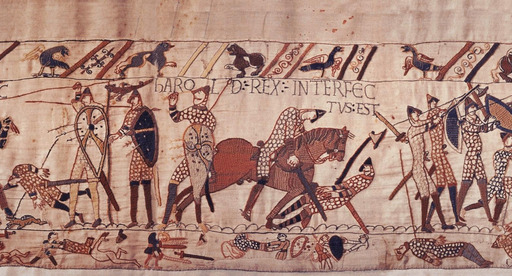 HAROLD:REX:INTERFEC
TVS:EST